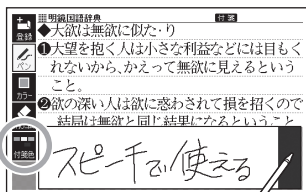 明鏡国語辞典
付箋
登録
ペン
カラー
付箋色
◆大欲は無欲に似た・り
❶大望を抱く人は小さな利益などには目もく
れないから、かえって無欲に見えるという
こと。
❷欲の深い人は欲に惑わされて損を招くので
結局は無欲と同じ結果になるということ
スピーチで使える